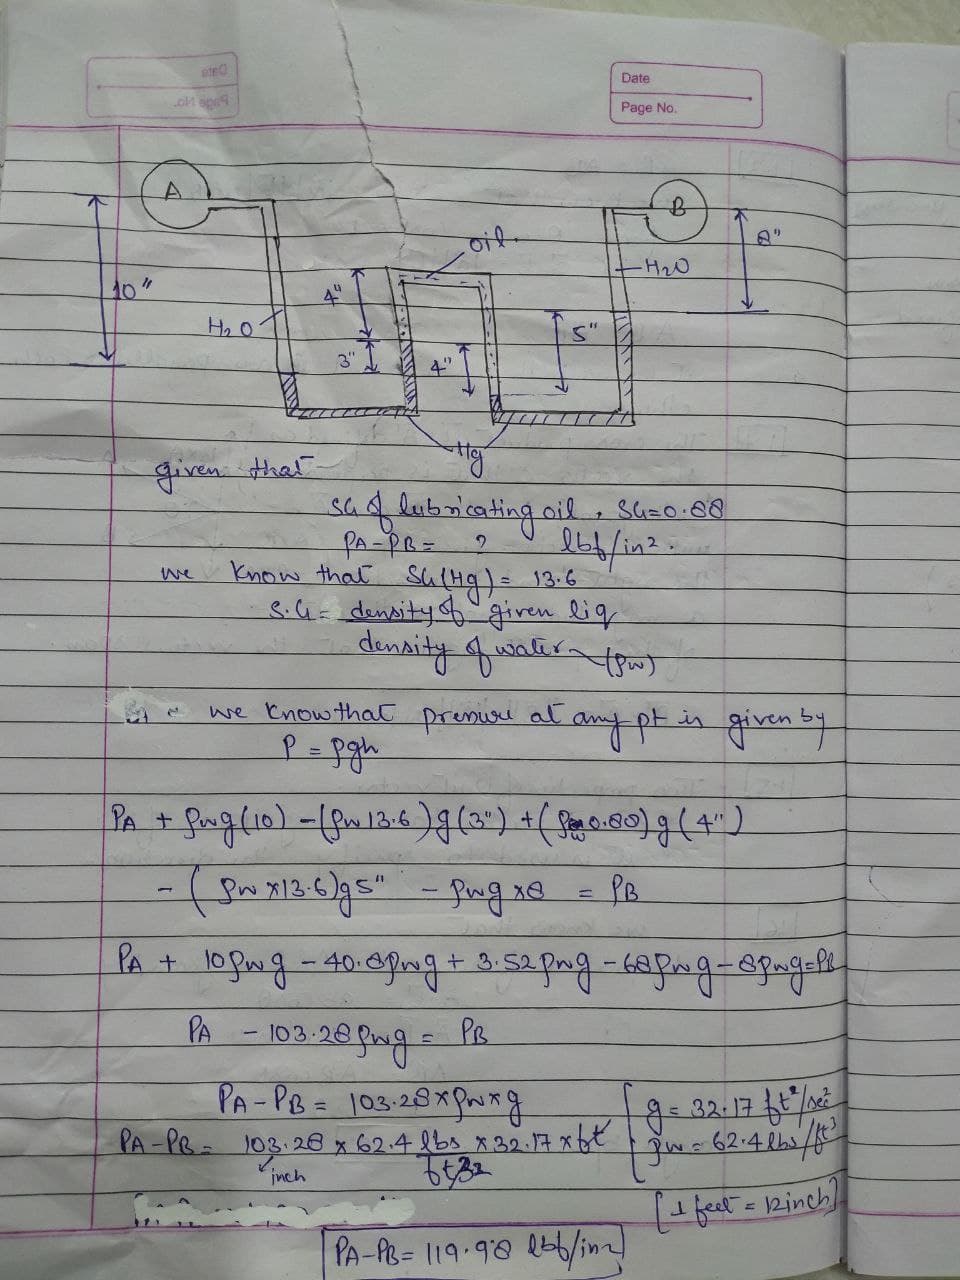 Date
Page No.
A
B
oil.
8"
H2O
10"
4"
H2O
5"
3"
4"
Hg
given that
SG of lubricating oil, SG=0.88
PA-PB= ? lbf/in².
we know that SG(Hg)= 13.6
S.G= density of given liq
density of water (ρw)
we know that pressure at any pt is given by
P = ρgh
PA + ρwg(10) -(ρw 13.6)g(3") +(ρw 0.88)g(4")
- (ρw x13.6)g5" - ρwg x8 = PB
PA + 10ρwg -40.8ρwg + 3.52ρwg -68ρwg-8ρwg=PB
PA - 103.28ρwg = PB
PA-PB= 103.28xρwxg
g= 32.17 ft²/sec²
PA-PB= 103.28 x 62.4 lbs x 32.17 x ft
ρw= 62.4 lbs/ft³
inch
[1 feet = 12inch]
PA-PB= 119.98 lbf/in2